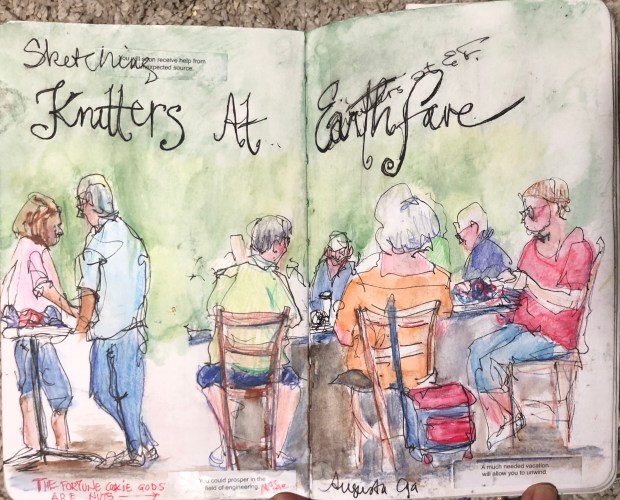 Sketching
You will soon receive help from
unexpected source.
Knatters At Earthfare
at E.F.
THE FORTUNE COOKIE GODS
ARE NUTS
You could prosper in the
field of engineering.
Augusta Ga
A much needed vacation
will allow you to unwind.